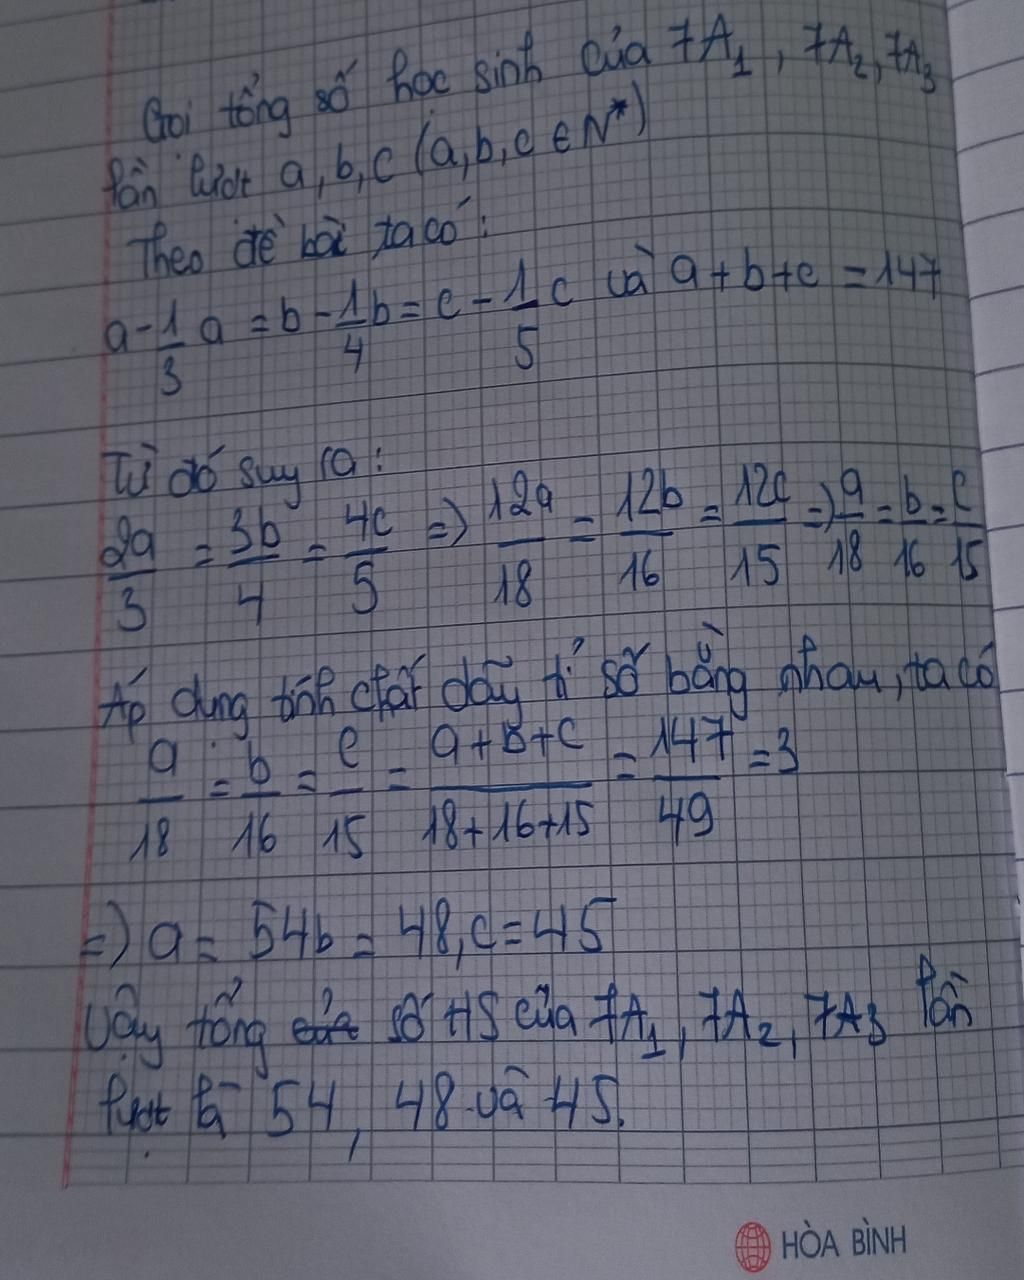 Gọi tổng số học sinh của 7A₁, 7A₂, 7A₃
lần lượt a, b, c (a, b, c ∈ N*)
Theo đề bài ta có:
a - 1/3 a = b - 1/4 b = c - 1/5 c và a + b + c = 147
Từ đó suy ra:
2a/3 = 3b/4 = 4c/5 => 12a/18 = 12b/16 = 12c/15 => a/18 = b/16 = c/15
Áp dụng tính chất dãy tỉ số bằng nhau, ta có
a/18 = b/16 = c/15 = a+b+c/18+16+15 = 147/49 = 3
=> a = 54 b = 48, c = 45
Vậy tổng số HS của 7A₁, 7A₂, 7A₃ lần
lượt là 54, 48 và 45.
HÒA BÌNH